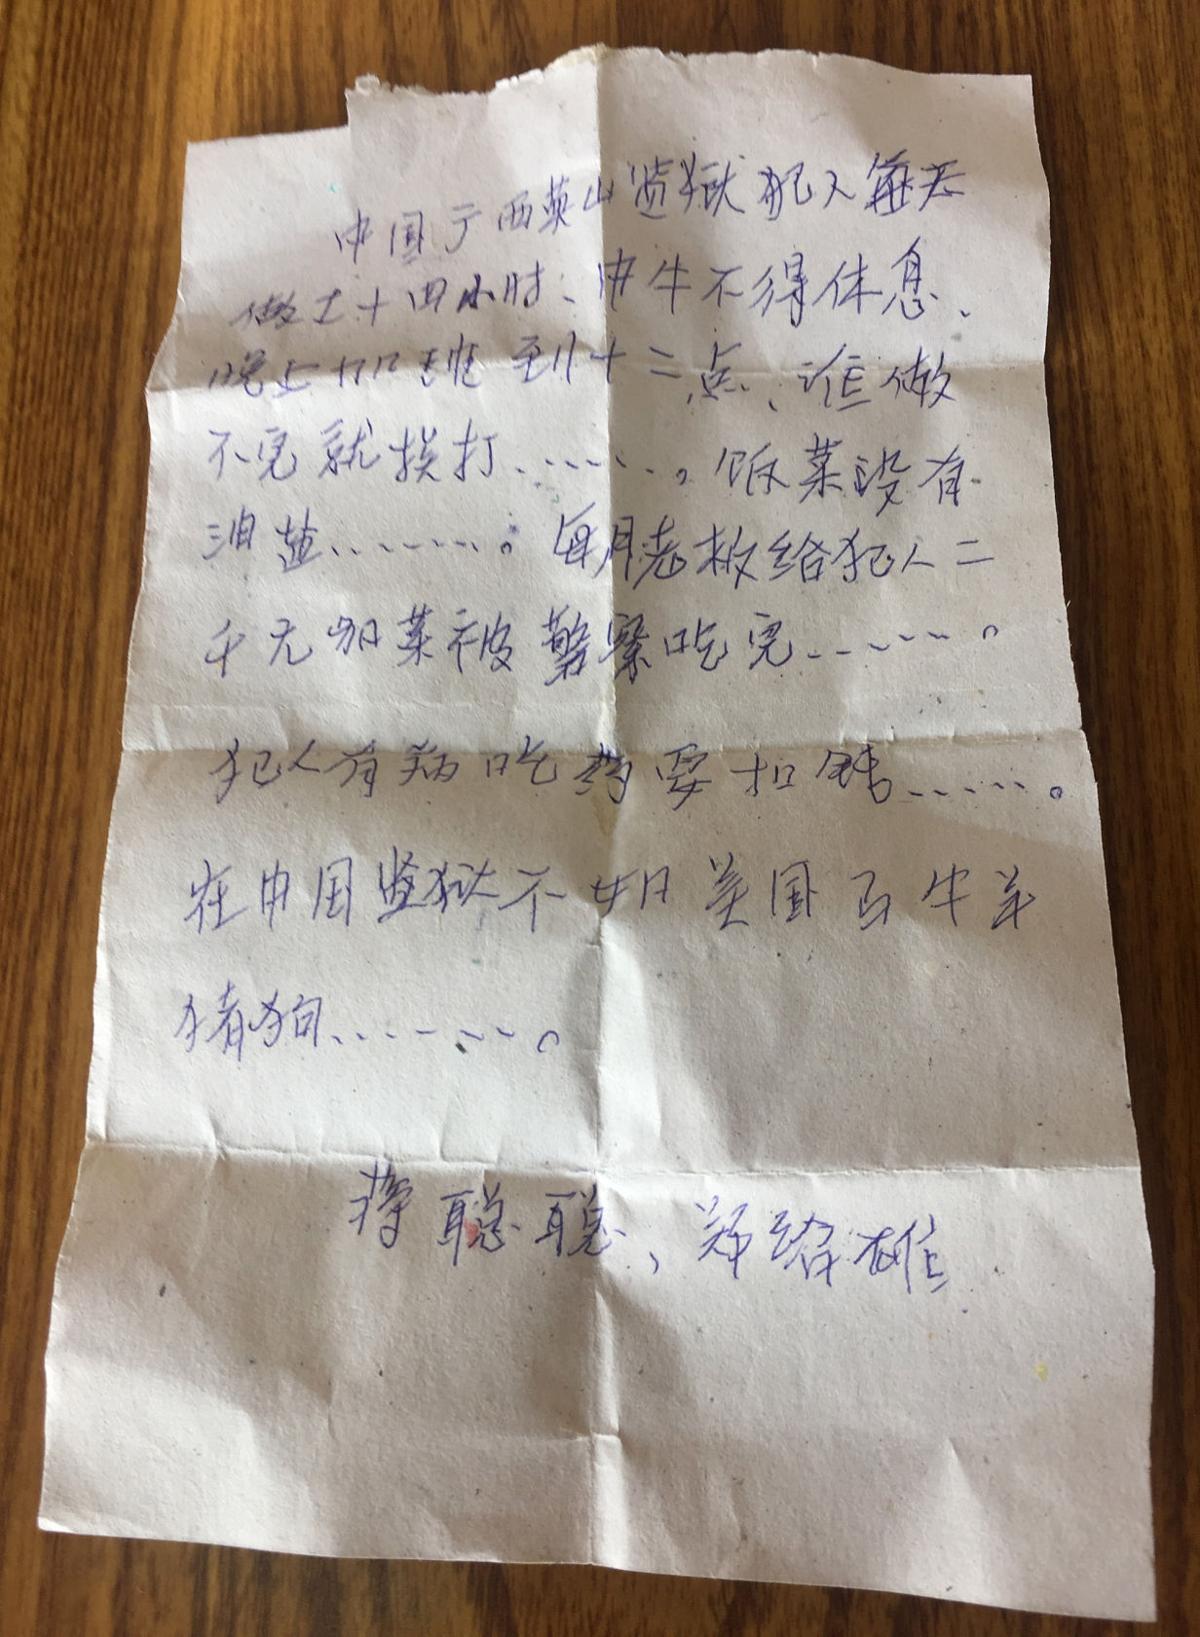 中国广西英山监獄犯人每天
做工十四小时、中午不得休息、
晚上加班到十二点、谁做
不完就挨打………。饭菜没有
油盐………。每月老板给犯人二
千元加菜被警察吃完………。
犯人有病吃药要扣钱………。
在中国监狱不如美国马牛羊
猪狗………。
蒋聪聪、郑